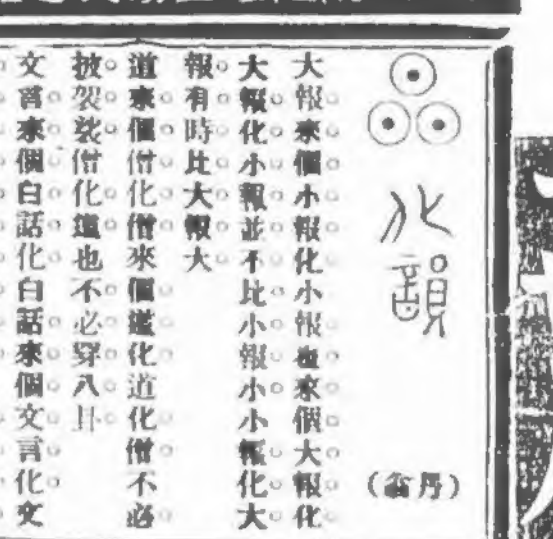 化
(丹翁)
大報來個小報化小報也來個大報化
大報化小報並不比小報小小報化大
報有時比大報大
道來個僧化僧來個道化道化僧不必
披袈裟僧化道也不必穿八卦
文言來個白話化白話來個文言化文